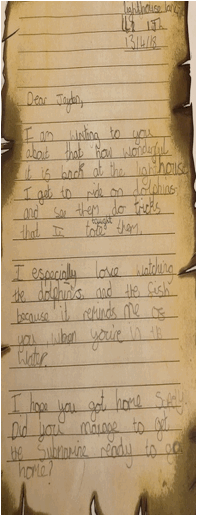 Lighthouse
13/4/18
Dear Jaydon,
I am writing to you
about that how wonderful
it is back at the lighthouse
I get to ride on dolphins
and see them do tricks
that I taught them.
I especially love watching
the dolphins and the fish
because it reminds me of
you when you're in the
water.
I hope you got home
Did you manage to get
the Submarine ready to go
home?